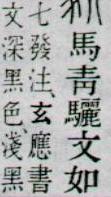 馬靑驪文如
七發注、玄應書
文深黑色、淺黑